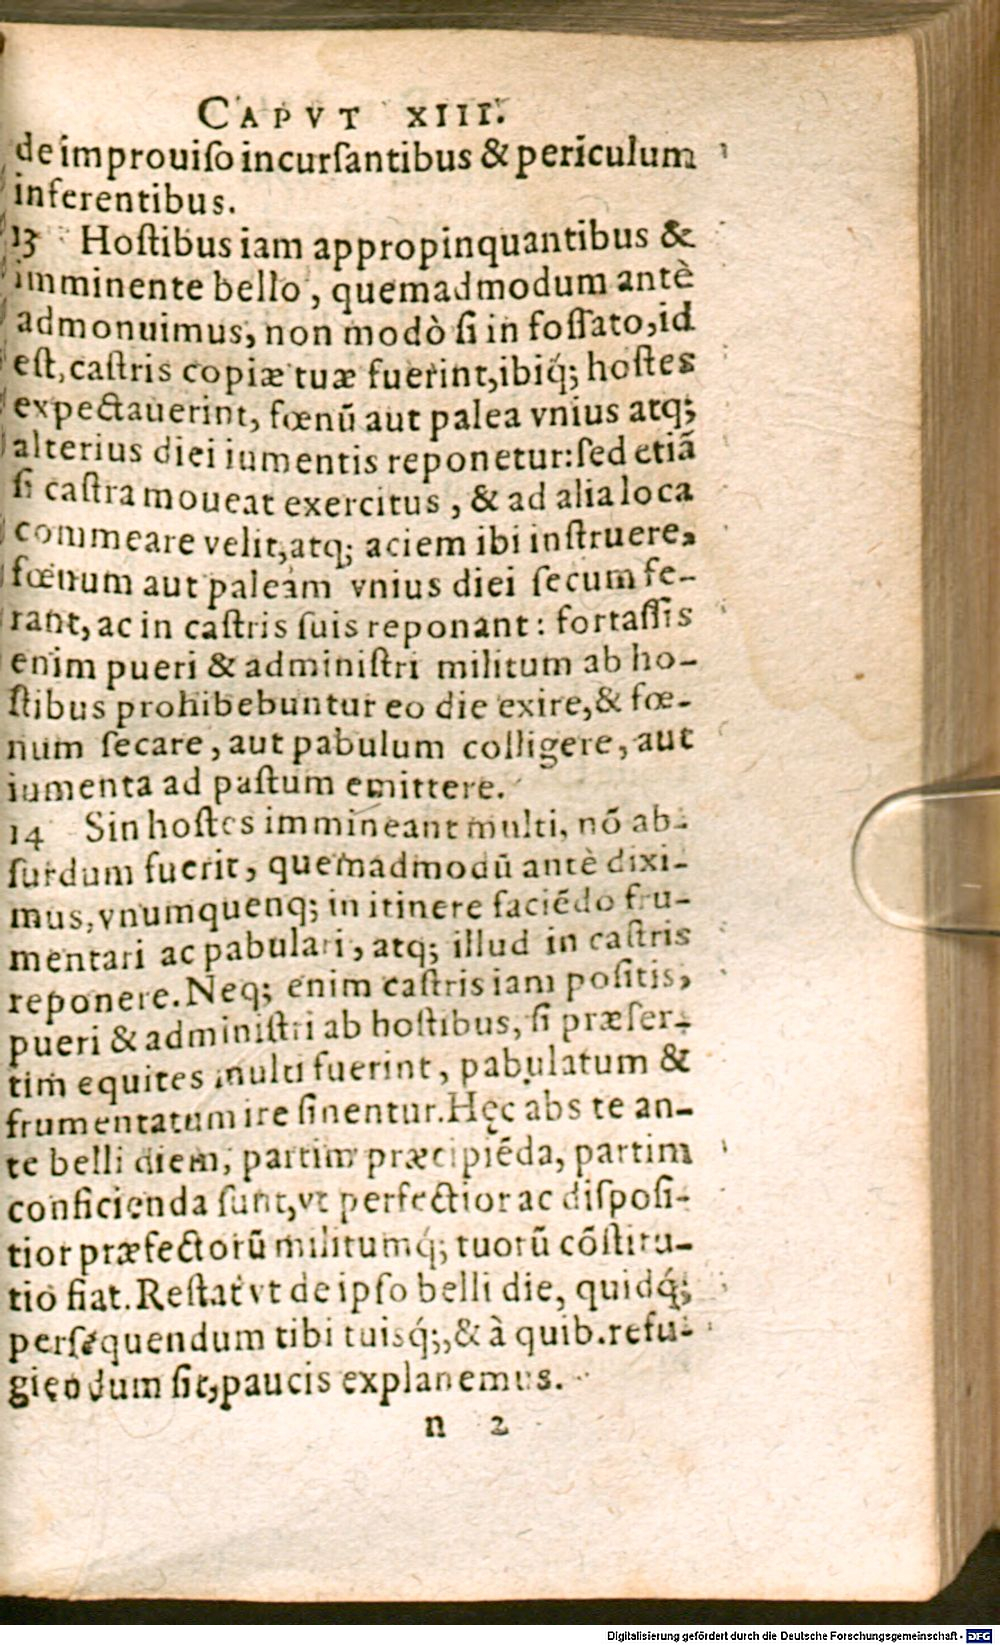 CAPVT XIII.
de improuiſo incurſantibus & periculum
inferentibus.
13 Hoſtibus iam appropinquantibus &
imminente bello, quemadmodum antè
admonuimus, non modò ſi in foſſato, id
eſt, caſtris copiæ tuæ fuerint, ibiq́; hoſtes
expectauerint, fœnũ aut palea vnius atq;
alterius diei iumentis reponetur: ſed etiã
ſi caſtra moueat exercitus, & ad alia loca
commeare velit, atq; aciem ibi inſtruere,
fœnum aut paleam vnius diei ſecum fe-
rant, ac in caſtris ſuis reponant: fortaſſis
enim pueri & adminiſtri militum ab ho-
ſtibus prohibebuntur eo die exire, & fœ-
num ſecare, aut pabulum colligere, aut
iumenta ad paſtum emittere.
14 Sin hoſtes immineant multi, nõ ab-
ſurdum fuerit, quemadmodũ antè dixi-
mus, vnumquenq; in itinere faciẽdo fru-
mentari ac pabulari, atq; illud in caſtris
reponere. Neq; enim caſtris iam poſitis,
pueri & adminiſtri ab hoſtibus, ſi præſer-
tim equites multi fuerint, pabulatum &
frumentatum ire ſinentur. Hęc abs te an-
te belli diem, partim præcipiẽda, partim
conficienda ſunt, vt perfectior ac diſpoſi-
tior præfectorũ militumq́; tuorũ cõſtitu-
tio fiat. Reſtat vt de ipſo belli die, quidq́;
perſequendum tibi tuisq́;, & à quib. refu-
giendum ſit, paucis explanemus.
n 2
Digitalisierung gefördert durch die Deutsche Forschungsgemeinschaft - DFG